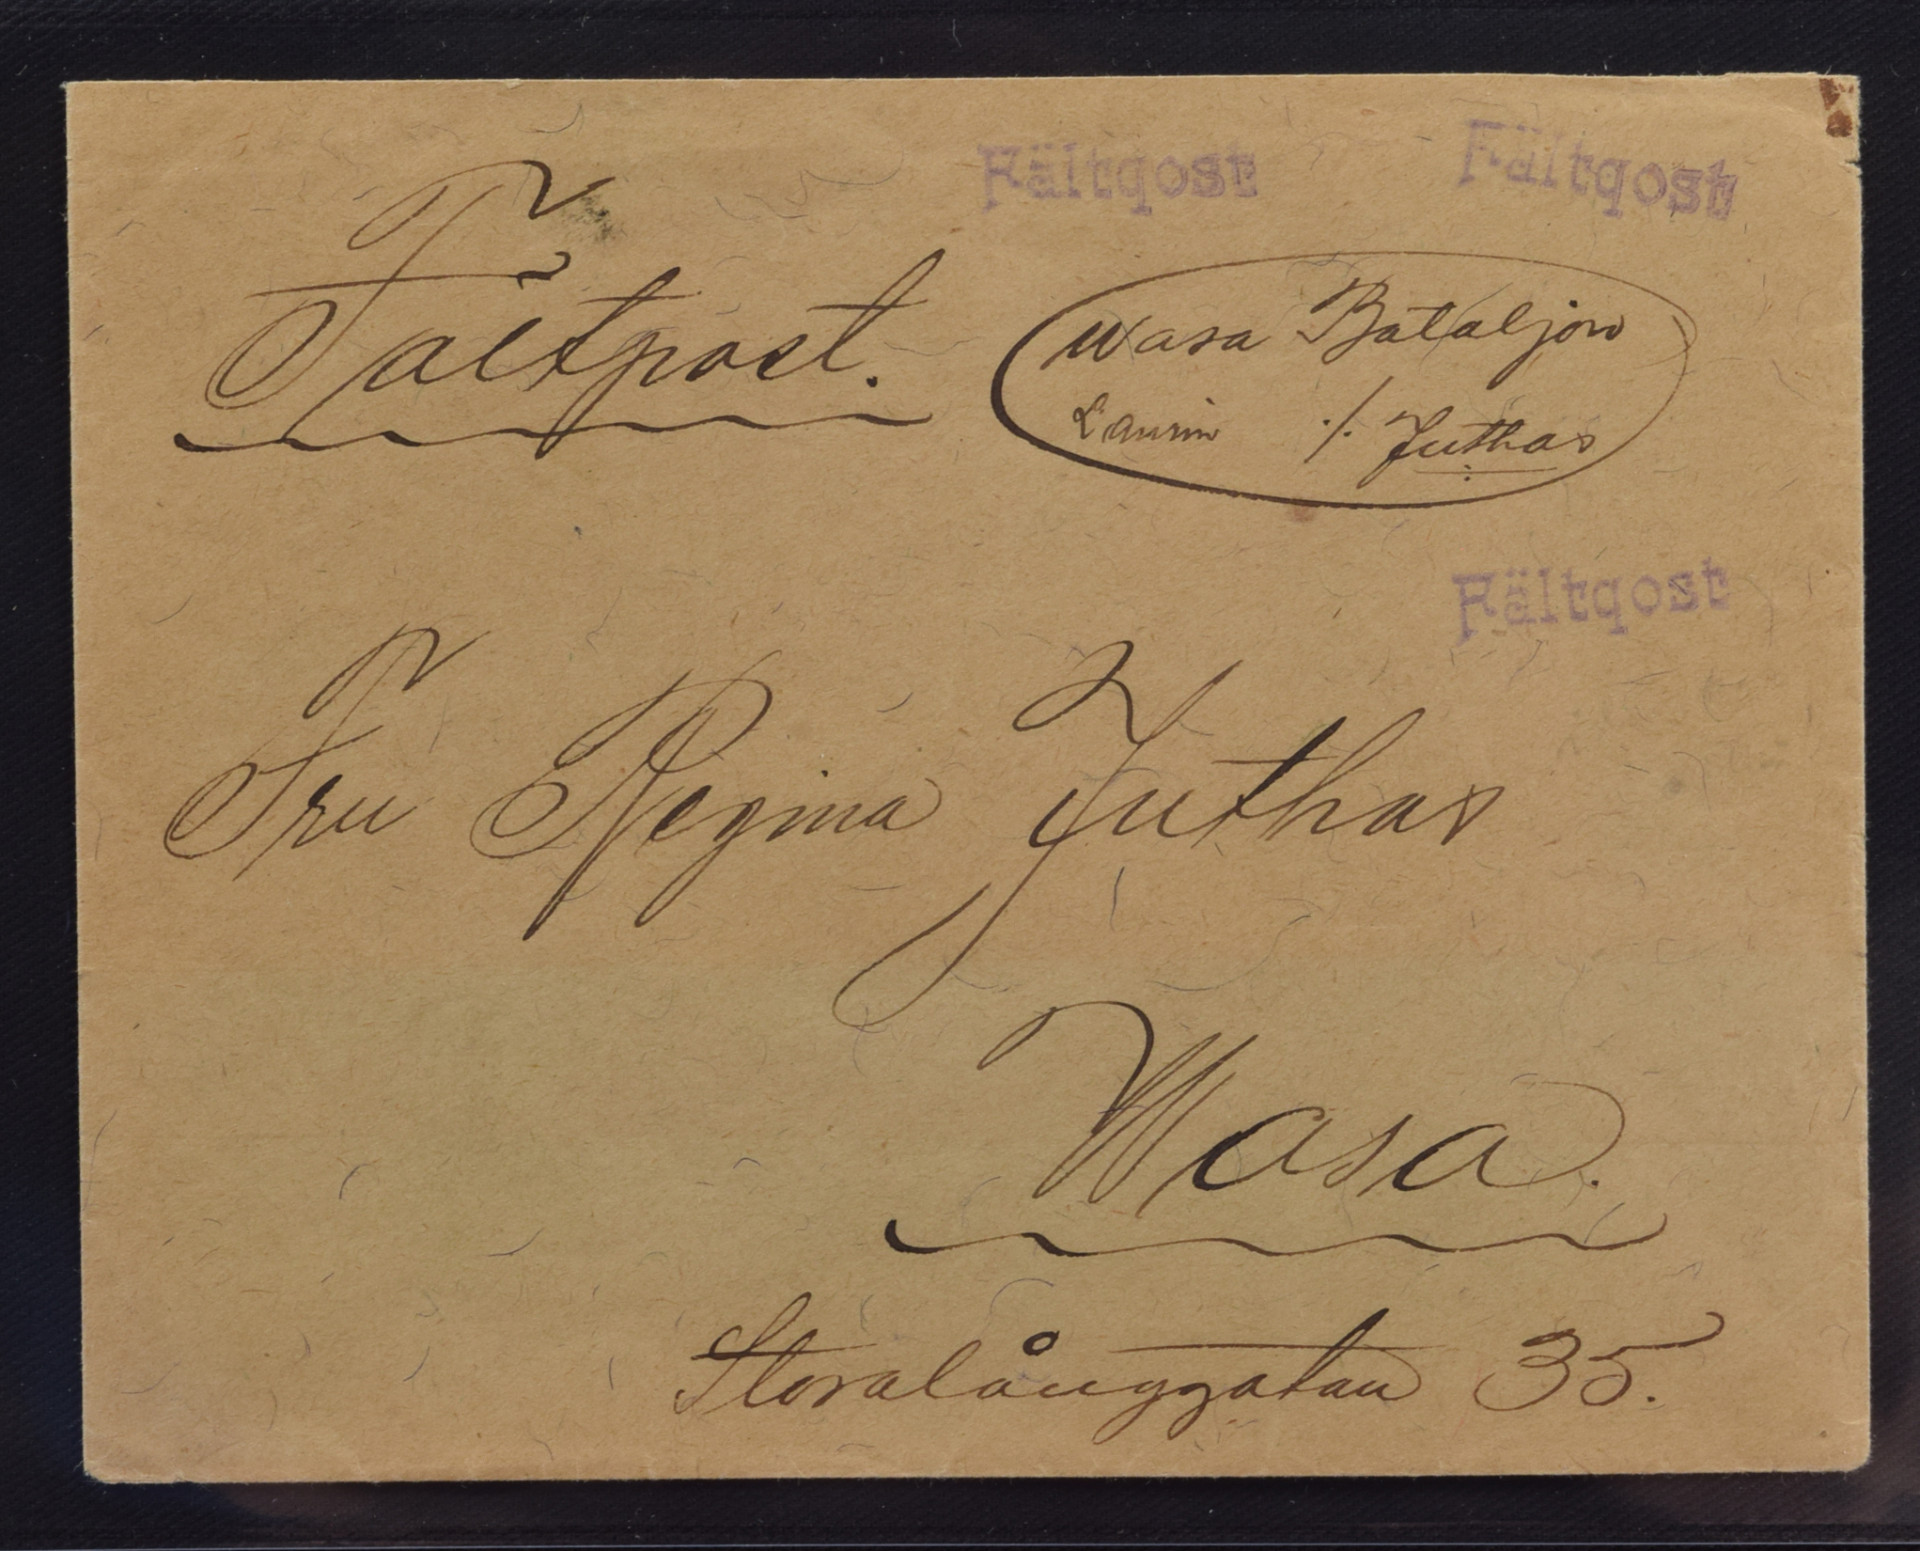 Fältqost Fältqost
Fältpost.
Wasa Bataljon
Laurin ./. Juthas
Fältqost
Fru Regina Juthas
Wasa.
Storalånggatan 35.